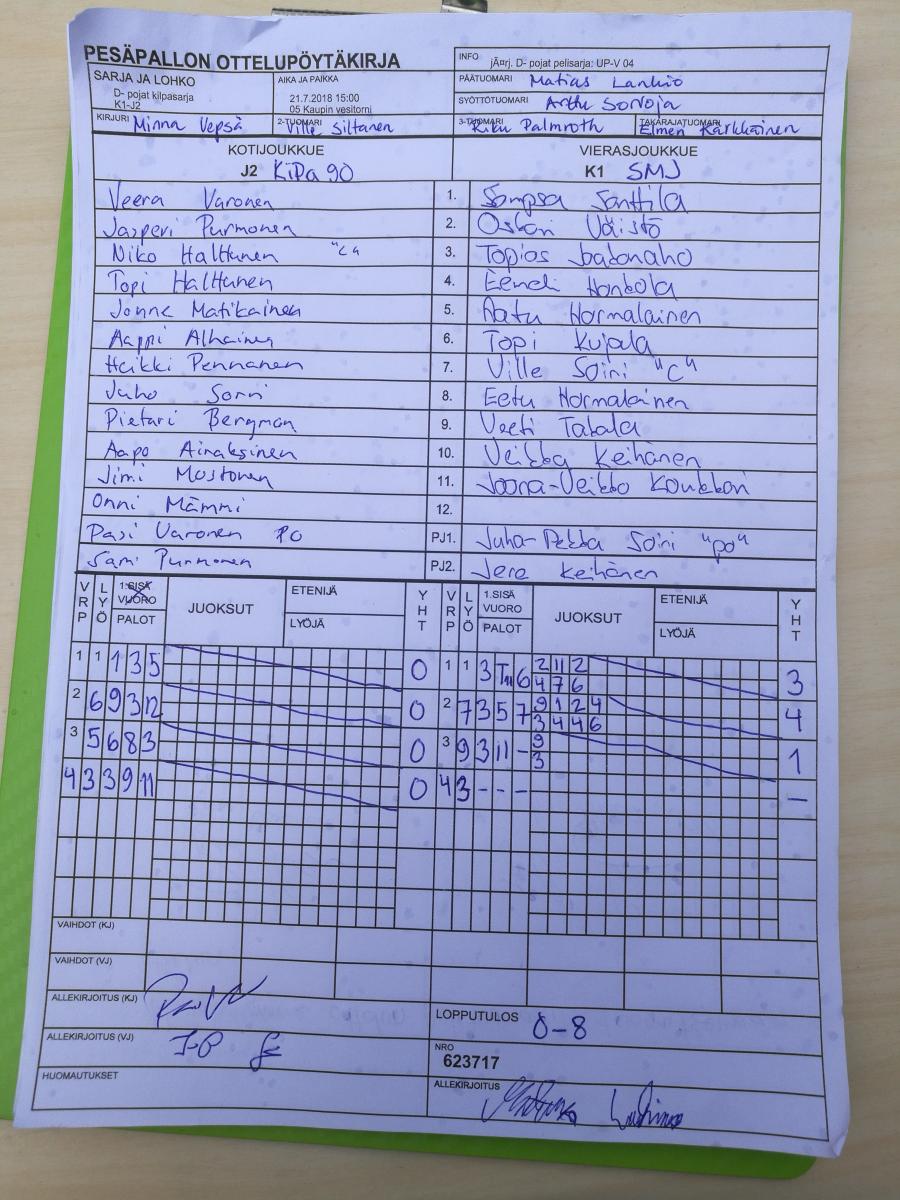 PESÄPALLON OTTELUPÖYTÄKIRJA
INFO jÄ¤rj. D- pojat pelisarja: UP-V 04
SARJA JA LOHKO
D- pojat kilpasarja
K1-J2
AIKA JA PAIKKA
21.7.2018 15:00
05 Kaupin vesitorni
PÄÄTUOMARI Matias Lankio
SYÖTTÖTUOMARI Arttu Sorvoja
KIRJURI Minna Vepsä
2-TUOMARI Ville Siltanen
3-TUOMARI Riku Palmroth
TAKARAJATUOMARI Elmeri Kärkkäinen
KOTIJOUKKUE
J2 KiPa 90
VIERASJOUKKUE
K1 SMJ
Veera Varonen 1. Sampsa Santtila
Jasperi Purmonen 2. Oskari Väistö
Niko Halttunen "C" 3. Topias Saatonaho
Topi Halttunen 4. Eemeli Honkola
Jonne Matikainen 5. Aatu Normalainen
Aappi Alhainen 6. Topi Kujala
Heikki Pennanen 7. Ville Soini "C"
Juho Sorri 8. Eetu Normalainen
Pietari Bergman 9. Veeti Takala
Aapo Airaksinen 10. Veikka Keihänen
Jimi Mostonen 11. Joona-Veikko Koukkari
Onni Mämmi 12.
Pasi Varonen PO PJ1. Juha-Pekka Soini "po"
Sami Purmonen PJ2. Jere Keihänen
VRP LYÖ 1.SISÄ VUORO PALOT JUOKSUT ETENIJÄ LYÖJÄ YHT VRP LYÖ 1.SISÄ VUORO PALOT JUOKSUT ETENIJÄ LYÖJÄ YHT
1 1 1 3 5 0 1 1 3 T11 6 2 11 2 3
4 7 6
2 6 9 3 12 0 2 7 3 5 7 9 1 2 4 4
3 4 4 6
3 5 6 8 3 0 3 9 3 11 - 9 1
3
4 3 3 9 11 0 4 3 - - - -
VAIHDOT (KJ)
VAIHDOT (VJ)
ALLEKIRJOITUS (KJ)
LOPPUTULOS 0-8
ALLEKIRJOITUS (VJ) J-P
NRO
623717
HUOMAUTUKSET
ALLEKIRJOITUS